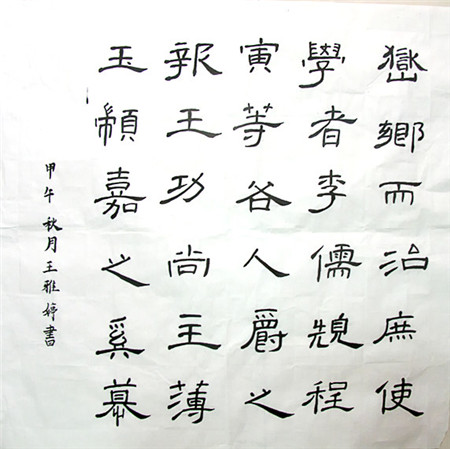 嶽鄉而治庶使
學者李儒規程
寅等各人爵之
報王功尚主薄
玉顓嘉之奚慕
甲午秋月王雅婷書